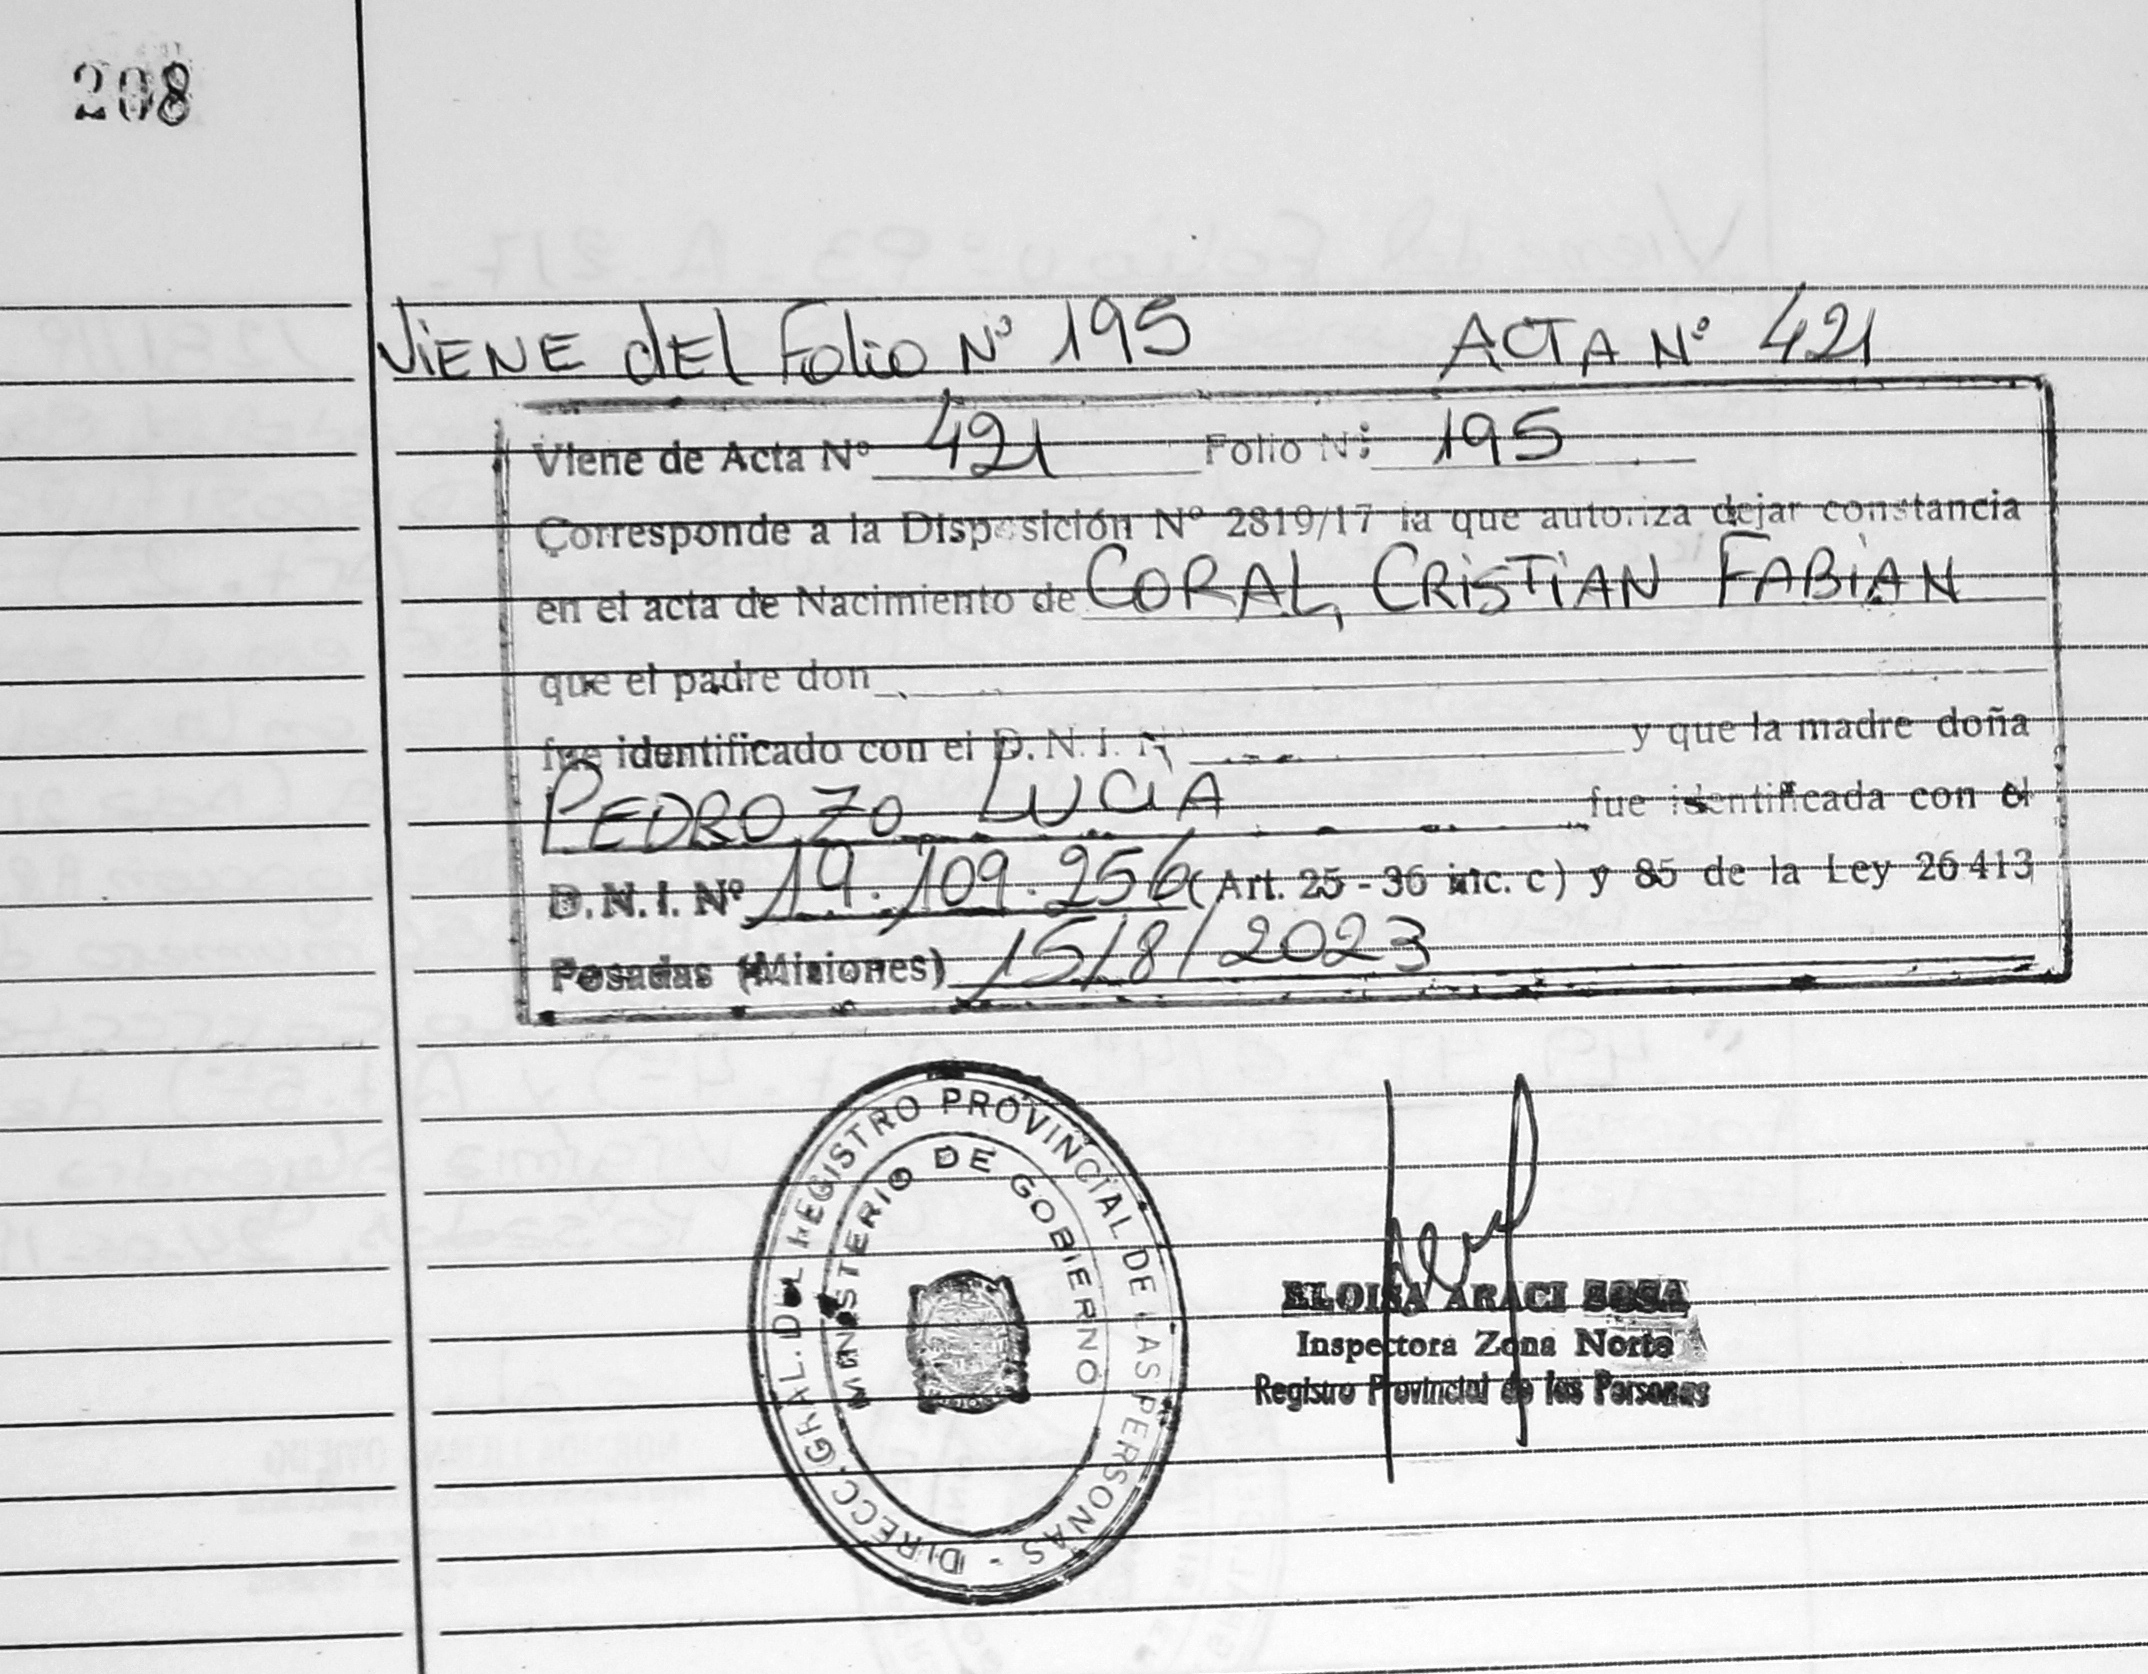 208
ViENE dEl Folio Nº 195 ACTA Nº 421
Viene de Acta Nº 421 Folio Nº 195
Corresponde a la Disposición Nº 2819/17 la que autoriza dejar constancia
en el acta de Nacimiento de CORAL, CRiSTiAN FABiAN
que el padre don
fue identificado con el D. N. I. N y que la madre doña
PEDROZO LUCiA fue identificada con el
D. N. I. Nº 19.109.256 (Art. 25 - 36 inc. c) y 85 de la Ley 26413
Posadas (Misiones) 15/8/2023
DIRECC. GRAL. DEL REGISTRO PROVINCIAL DE LAS PERSONAS -
MINISTERIO DE GOBIERNO
ELOISA ARACI SOSA
Inspectora Zona Norte
Registro Provincial de las Personas